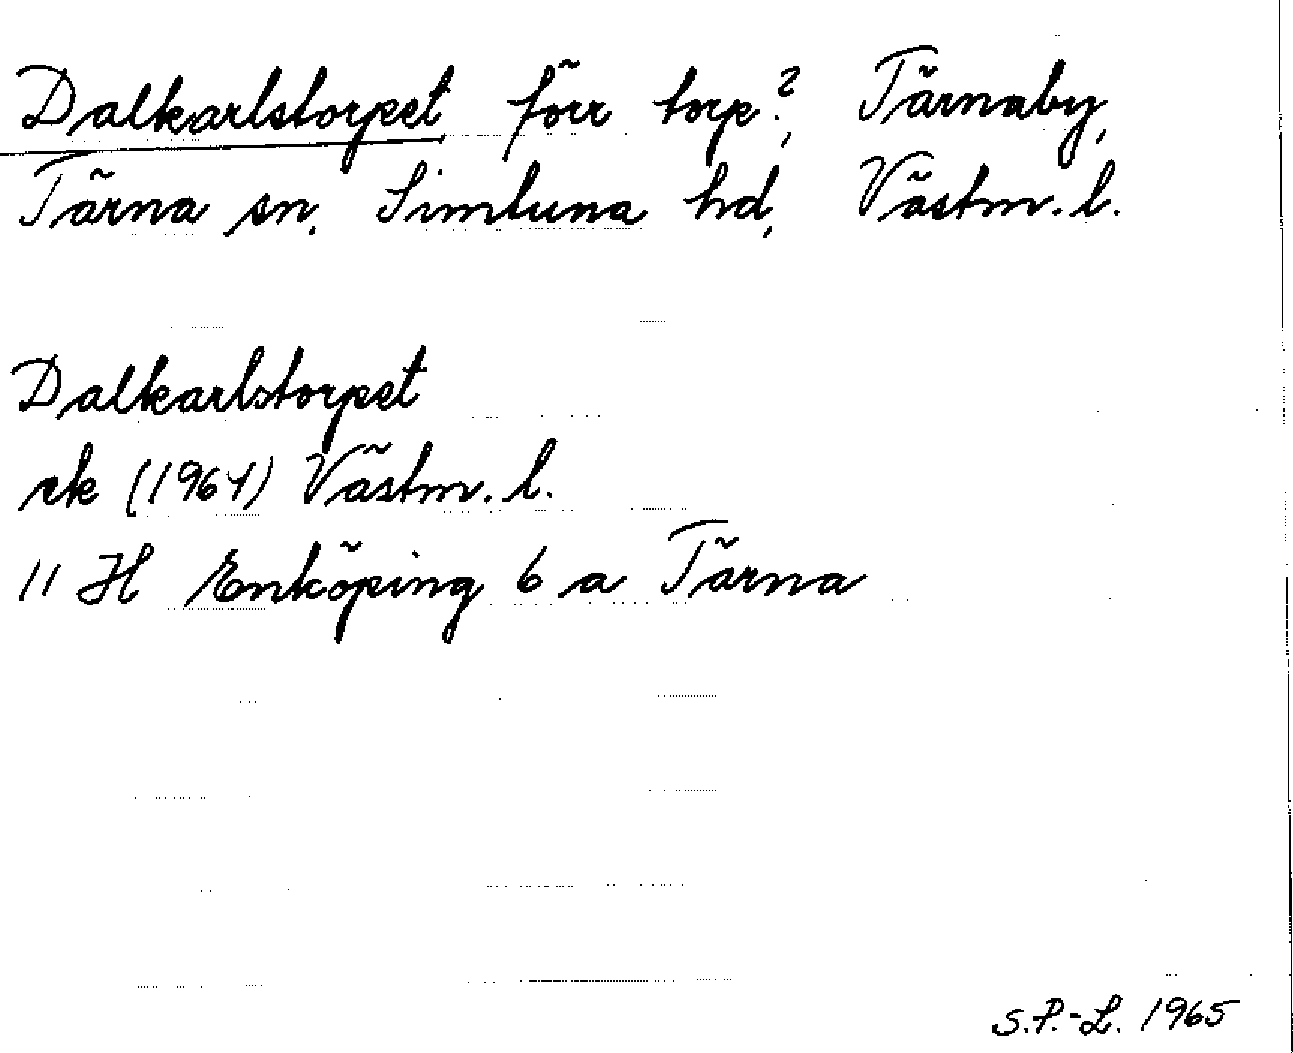 Dalkarlstorpet förr torp?, Tärnaby,
Tärna sn, Simtuna hd, Västm. l.
Dalkarlstorpet
rk (1964) Västm. l.
11 H Enköping 6 a Tärna
S.P.-L. 1965